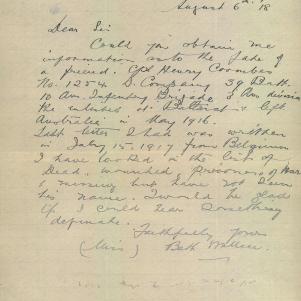 August 6th 18
Dear Sir
Could you obtain me
information as to the fate of
a friend. Cpl Henry Coombes
No. 1254 D. Company 39 Batt.
10 Aus Infantry Brigade 3 Aus division
He left
Australia in May 1916.
Last letter I had was written
in July 15. 1917 from Belgium
I have looked in the list of
Dead, wounded, prisoners of War
& missing but have not seen
his name. I would be glad
if I could hear something
definate.
Faithfully yours
(Miss) Beth